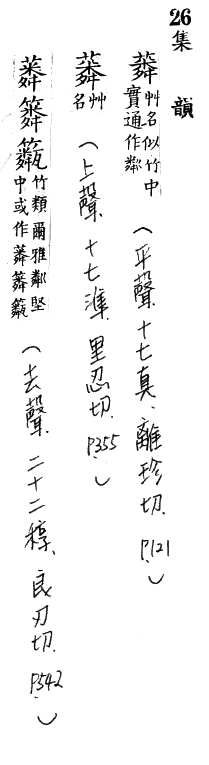 26 集韻
艸名似竹中實通作鄰（平聲 十七真、離珍切. P.121.）
艸名（上聲 十七準 里忍切. P355.）
竹類爾雅鄰堅中或作（去聲. 二十二稕、良刃切. P542.）